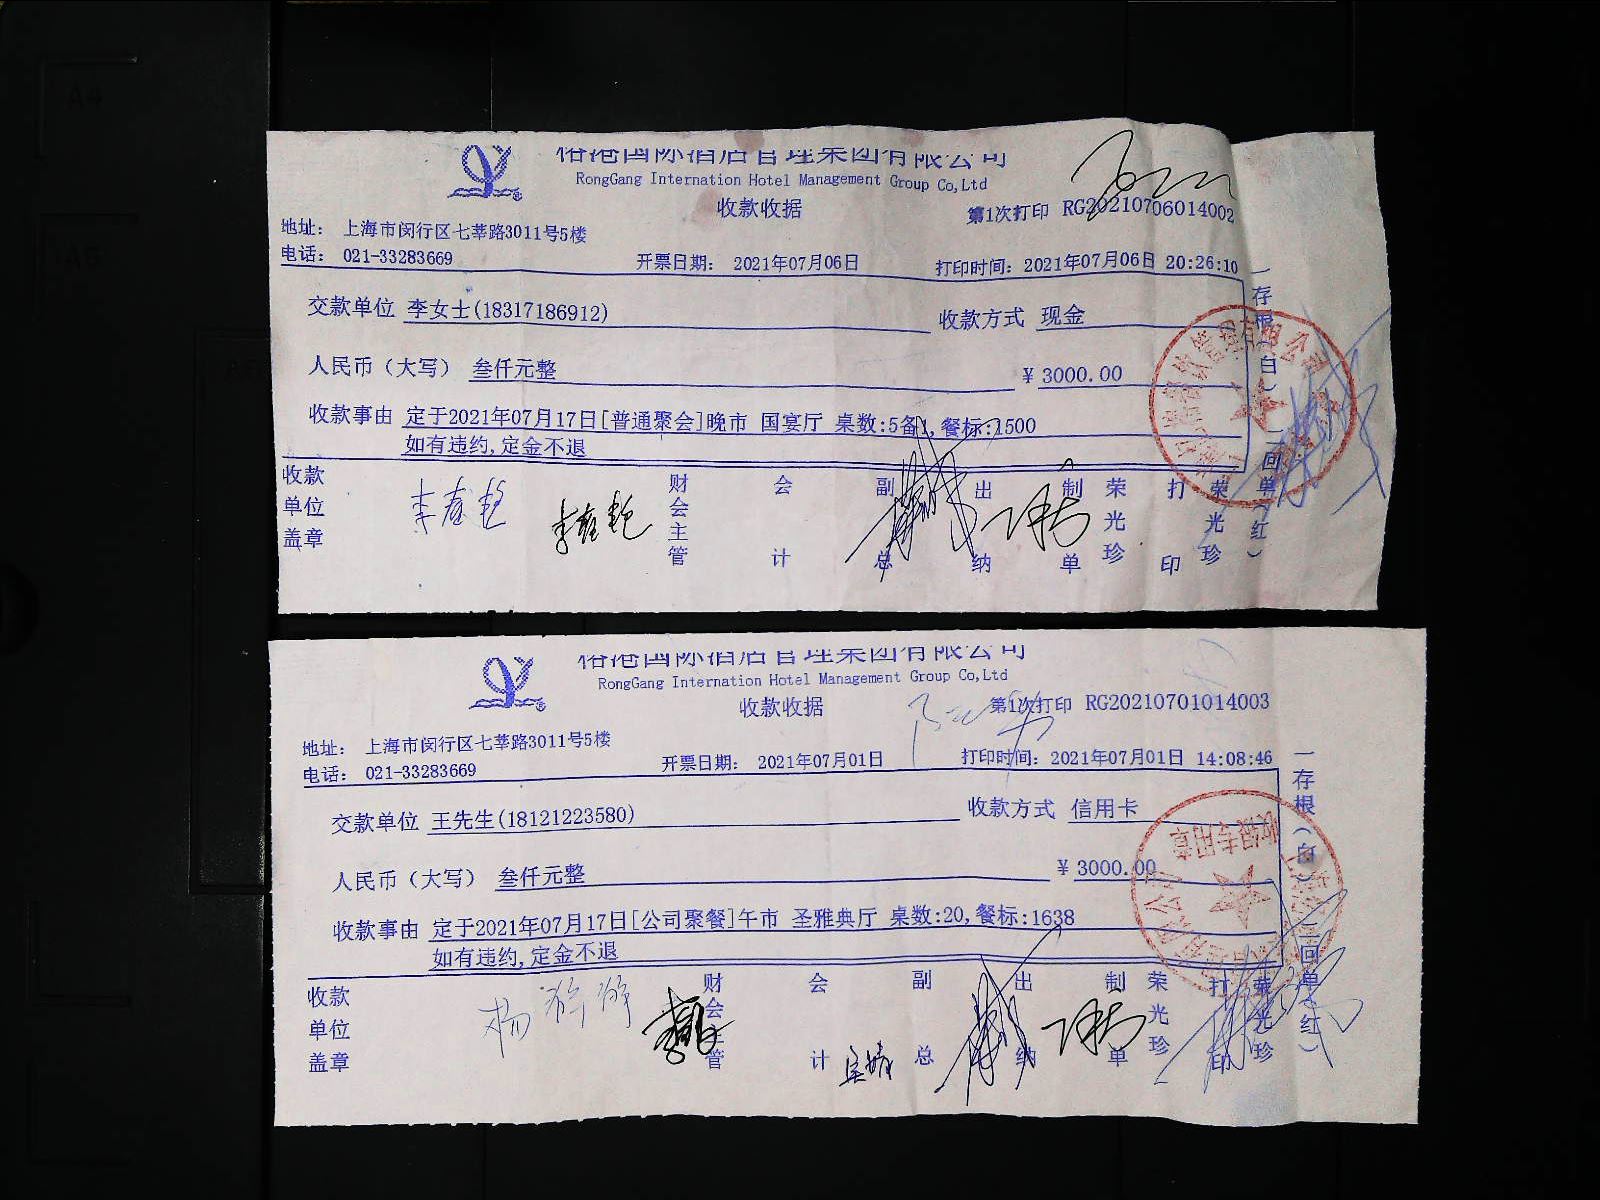 榕港国际酒店管理集团有限公司
RongGang Internation Hotel Management Group Co,Ltd
收款收据
第1次打印 RG20210706014002
地址： 上海市闵行区七莘路3011号5楼
电话： 021-33283669
开票日期： 2021年07月06日
打印时间：2021年07月06日 20:26:10
交款单位 李女士(18317186912)
收款方式 现金
人民币（大写） 叁仟元整
￥3000.00
收款事由 定于2021年07月17日[普通聚会]晚市 国宴厅 桌数:5备1,餐标:1500
如有违约,定金不退
收款单位盖章
财会主管
会计
副总
出纳
制单 荣光珍
打印 荣光珍
一存根(白)二回单(红)
榕港国际酒店管理集团有限公司
RongGang Internation Hotel Management Group Co,Ltd
收款收据
第1次打印 RG20210701014003
地址： 上海市闵行区七莘路3011号5楼
电话： 021-33283669
开票日期： 2021年07月01日
打印时间：2021年07月01日 14:08:46
交款单位 王先生(18121223580)
收款方式 信用卡
人民币（大写） 叁仟元整
￥3000.00
收款事由 定于2021年07月17日[公司聚餐]午市 圣雅典厅 桌数:20,餐标:1638
如有违约,定金不退
收款单位盖章
财会主管
会计
副总
出纳
制单 荣光珍
打印 荣光珍
一存根(白)二回单(红)
收银专用章